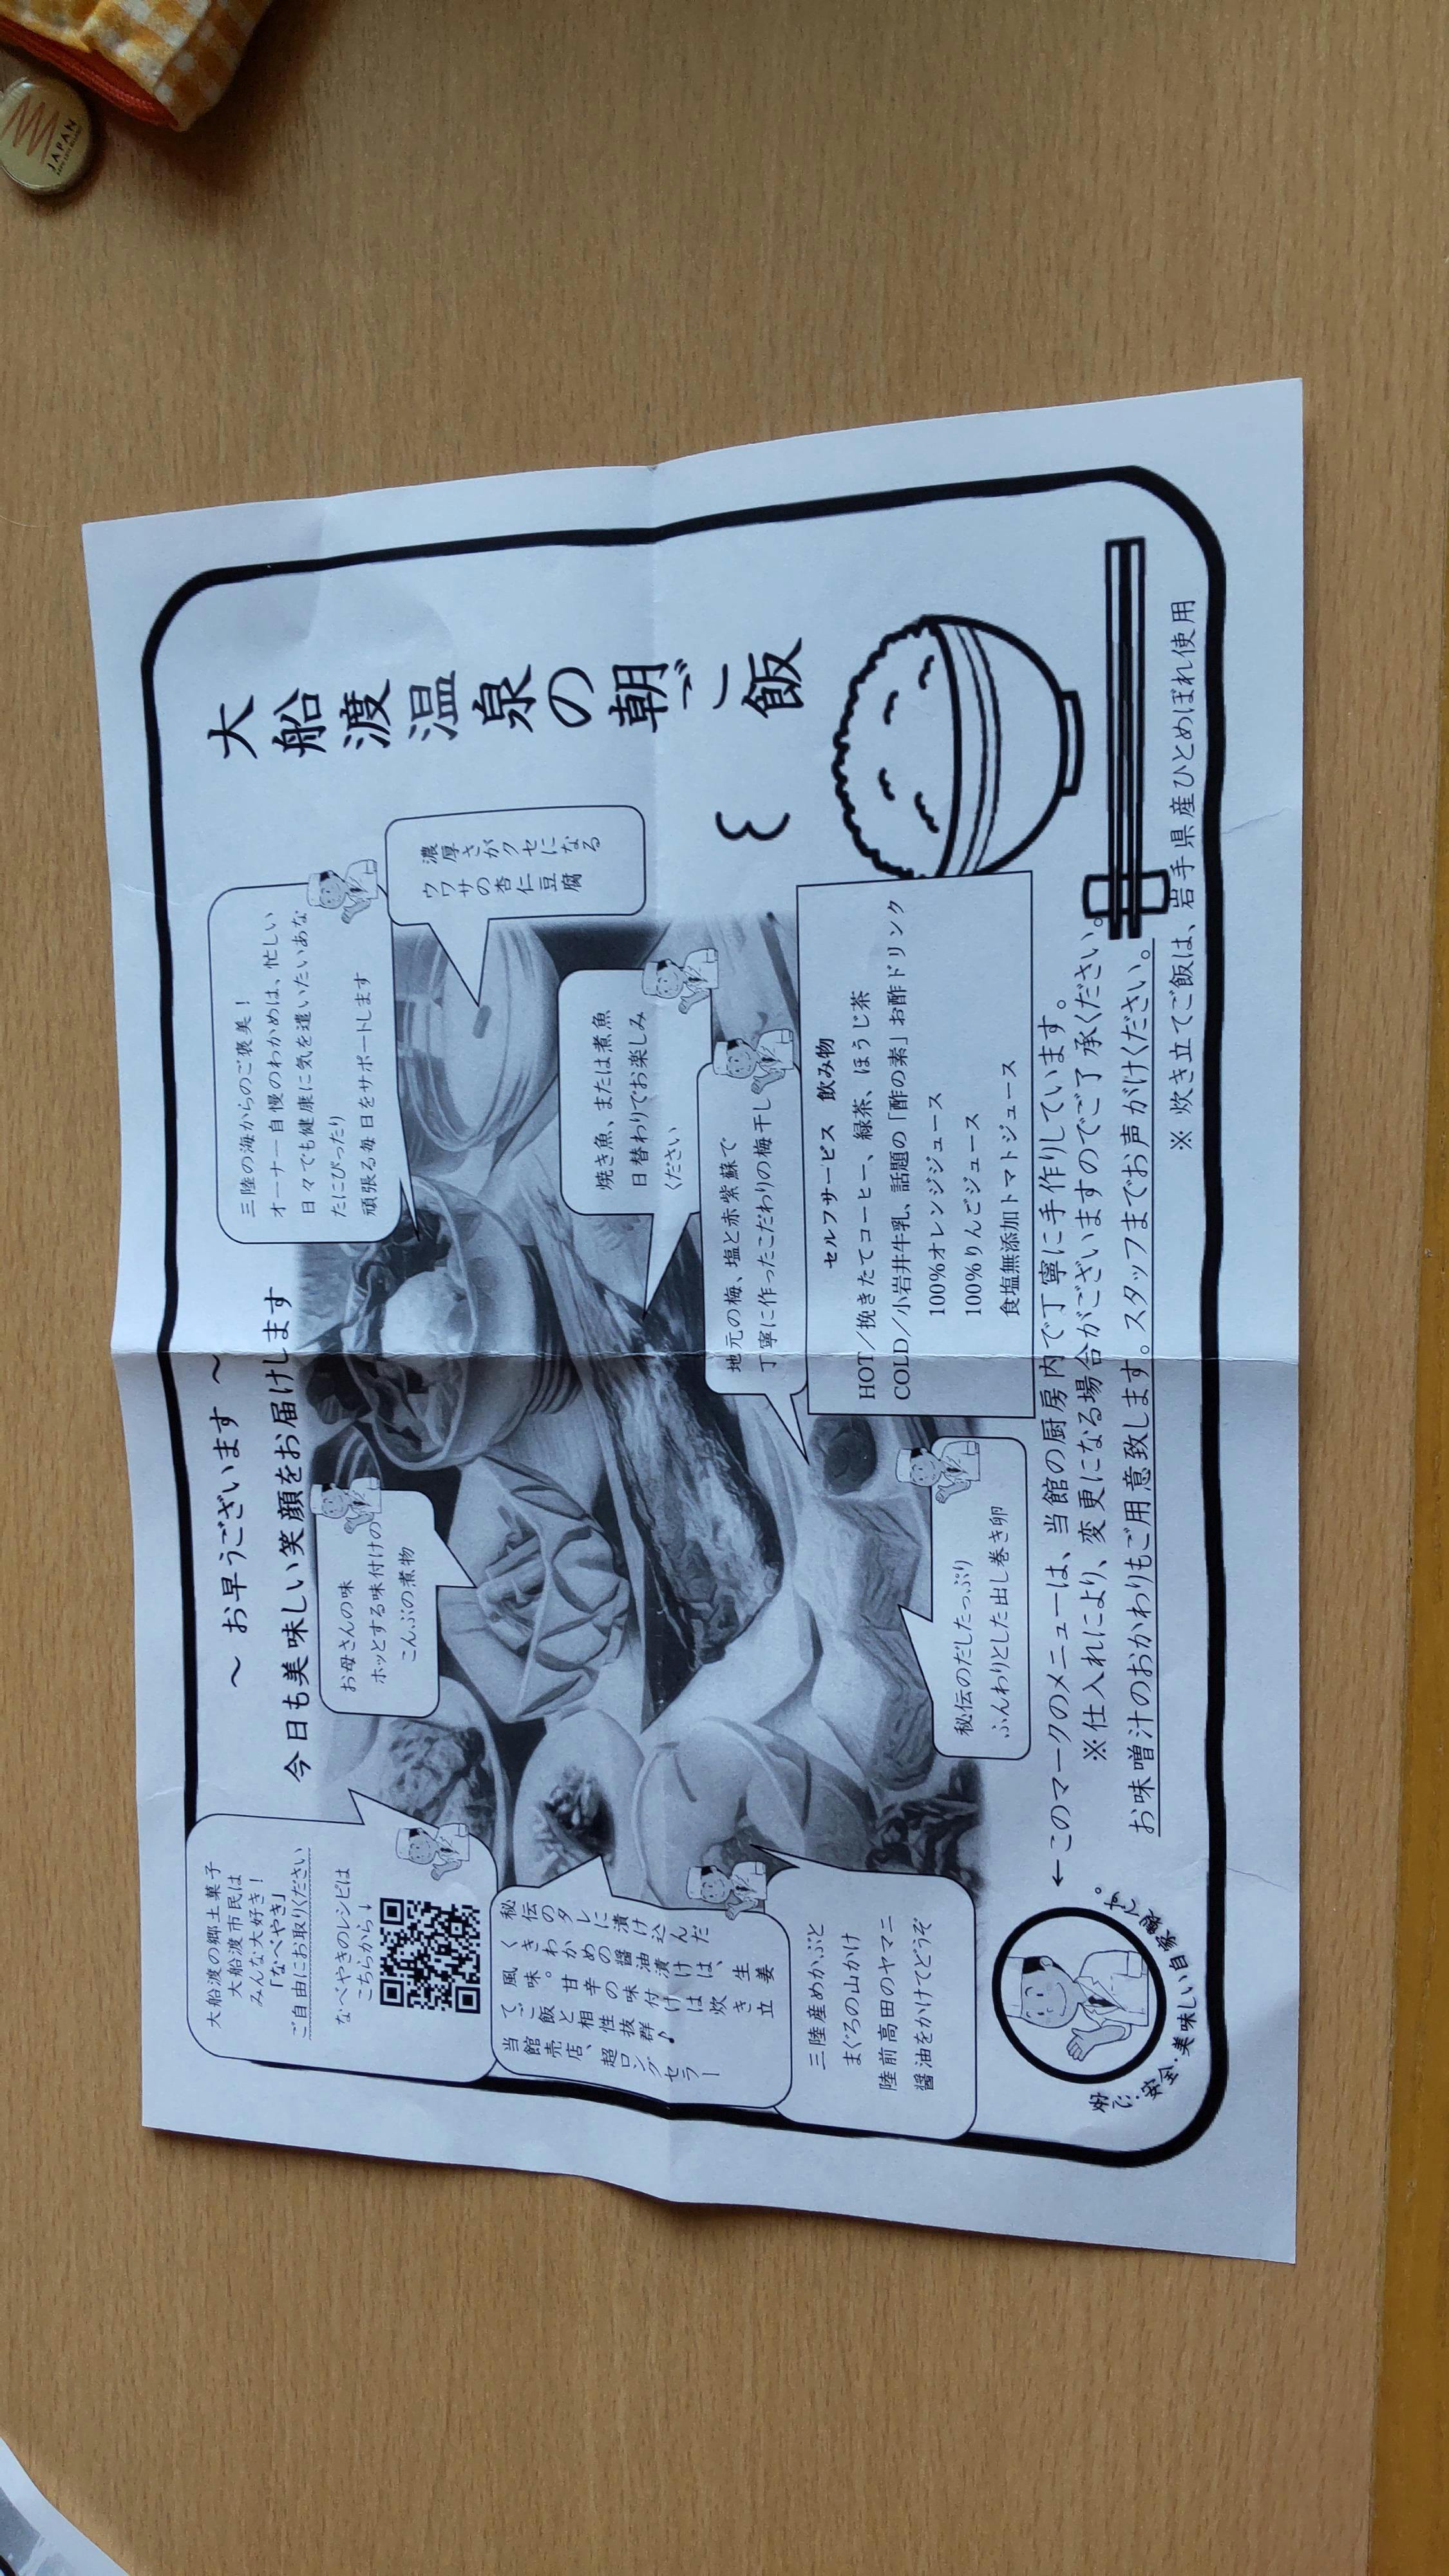 大船渡温泉の朝ご飯
～ お早うございます ～
今日も美味しい笑顔をお届けします
大船渡の郷土菓子
大船渡市民は
みんな大好き！
「なべやき」
ご自由にお取りください
なべやきのレシピは
こちらから↓
お母さんの味
ホッとする味付けの
こんぶの煮物
三陸の海からのご褒美！
オーナー自慢のわかめは、忙しい
日々でも健康に気を遣いたいあな
たにぴったり
頑張る毎日をサポートします
濃厚さがクセになる
ウワサの杏仁豆腐
焼き魚、または煮魚
日替わりでお楽しみ
ください
地元の梅、塩と赤紫蘇で
丁寧に作ったこだわりの梅干し
秘伝のタレに漬け込んだ
くきわかめの醤油漬けは、生姜
風味。甘辛の味付けは炊き立
てご飯と相性抜群♪
当館売店、超ロングセラー
三陸産めかぶと
まぐろの山かけ
陸前高田のヤマニ
醤油をかけてどうぞ
秘伝のだしたっぷり
ふんわりとした出し巻き卵
セルフサービス 飲み物
HOT／挽きたてコーヒー、緑茶、ほうじ茶
COLD／小岩井牛乳、話題の「酢の素」お酢ドリンク
100%オレンジジュース
100%りんごジュース
食塩無添加トマトジュース
←このマークのメニューは、当館の厨房内で丁寧に手作りしています。
※仕入れにより、変更になる場合がございますのでご了承ください。
お味噌汁のおかわりもご用意致します。スタッフまでお声がけください。
※炊き立てご飯は、岩手県産ひとめぼれ使用
安全・美味しい自家製
JAPAN